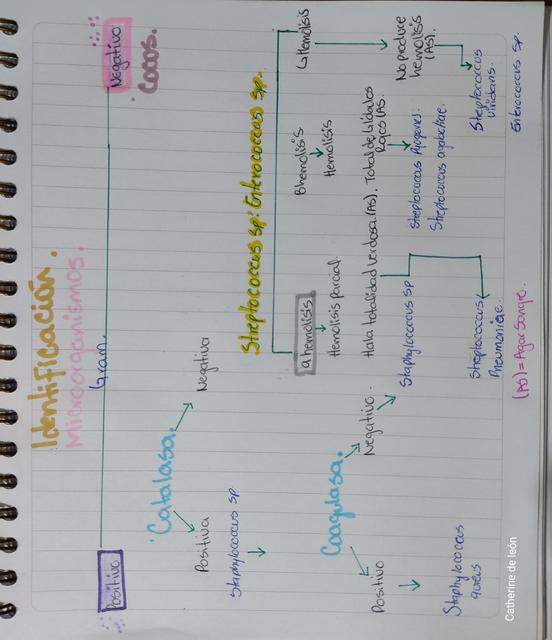 Identificación.
Microorganismos.
Gram.
Positivo
Negativo
Cocos.
Catalasa.
Positiva
Negativa
Staphylococcus sp
Streptococcus sp: Enterococcus sp.
Coagulasa.
Positivo
Negativo.
Staphylococcus
aureus
Staphylococcus sp
αhemolisis
Hemolisis parcial.
Halo totalidad verdosa (AS).
Streptococcus
Pneumoniae.
Bhemolisis
Hemolisis
Total de glóbulos
Rojos (AS.
Streptococcus Piogenes.
Streptococcus agalactiae.
Ghemolisis
No produce
hemolisis
(AS).
Streptococcus
viridans.
Enterococcus sp.
(AS) = Agar Sangre.
Catherine de león